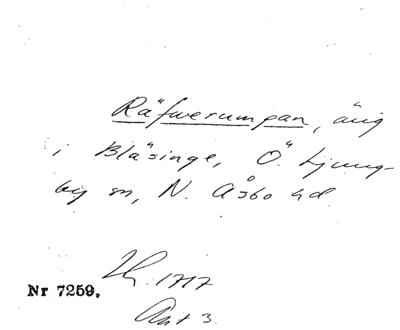 Räfwerumpan, äng
i Bläsinge, Ö. Ljung-
by sn, N. Åsbo hd.
1717
Nr 7259.
Akt 3.